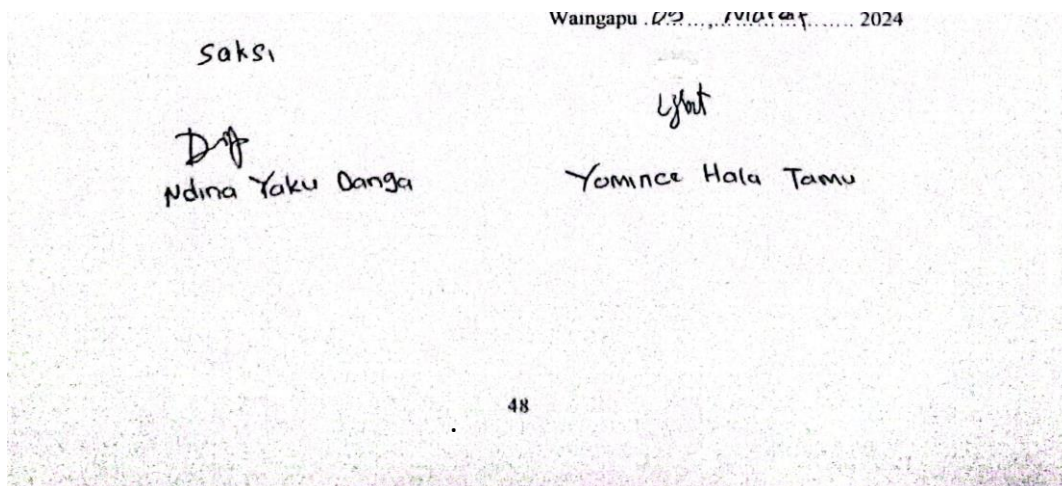 Waingapu ............, .................... 2024
Saksi
Ndina Yaku Danga
Yomince Hala Tamu
48